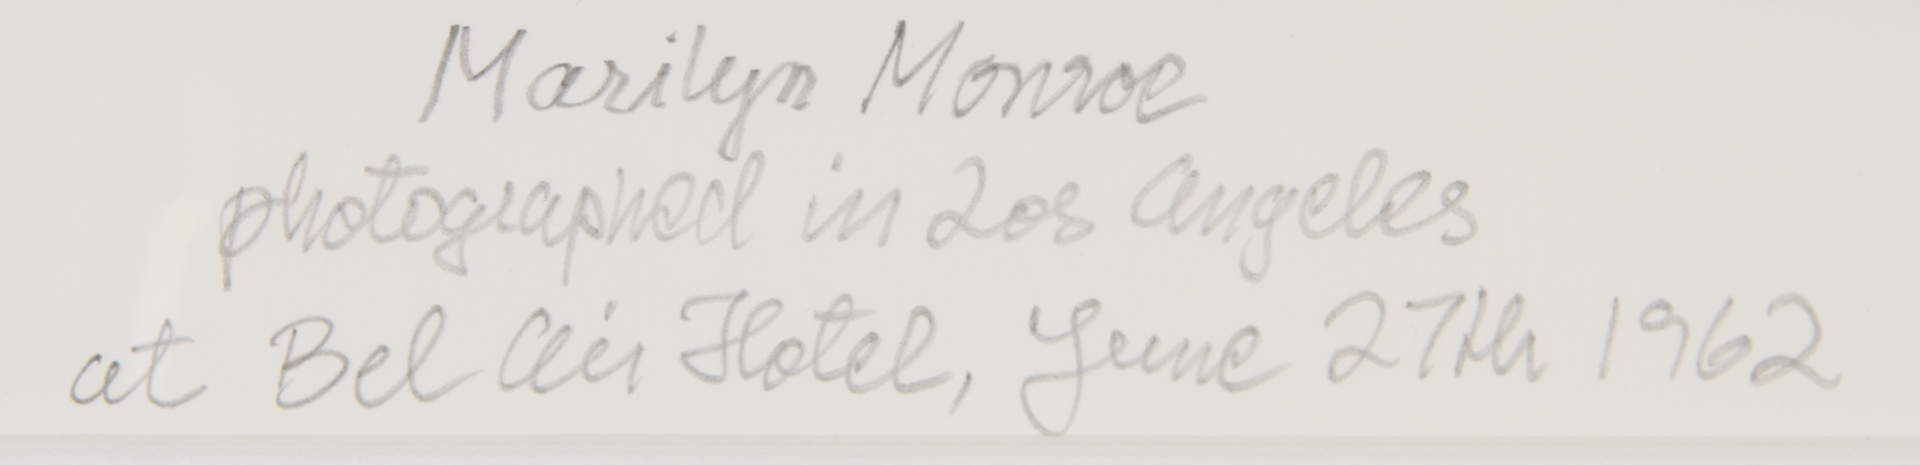 Marilyn Monroe
photographed in Los Angeles
at Bel Air Hotel, June 27th 1962